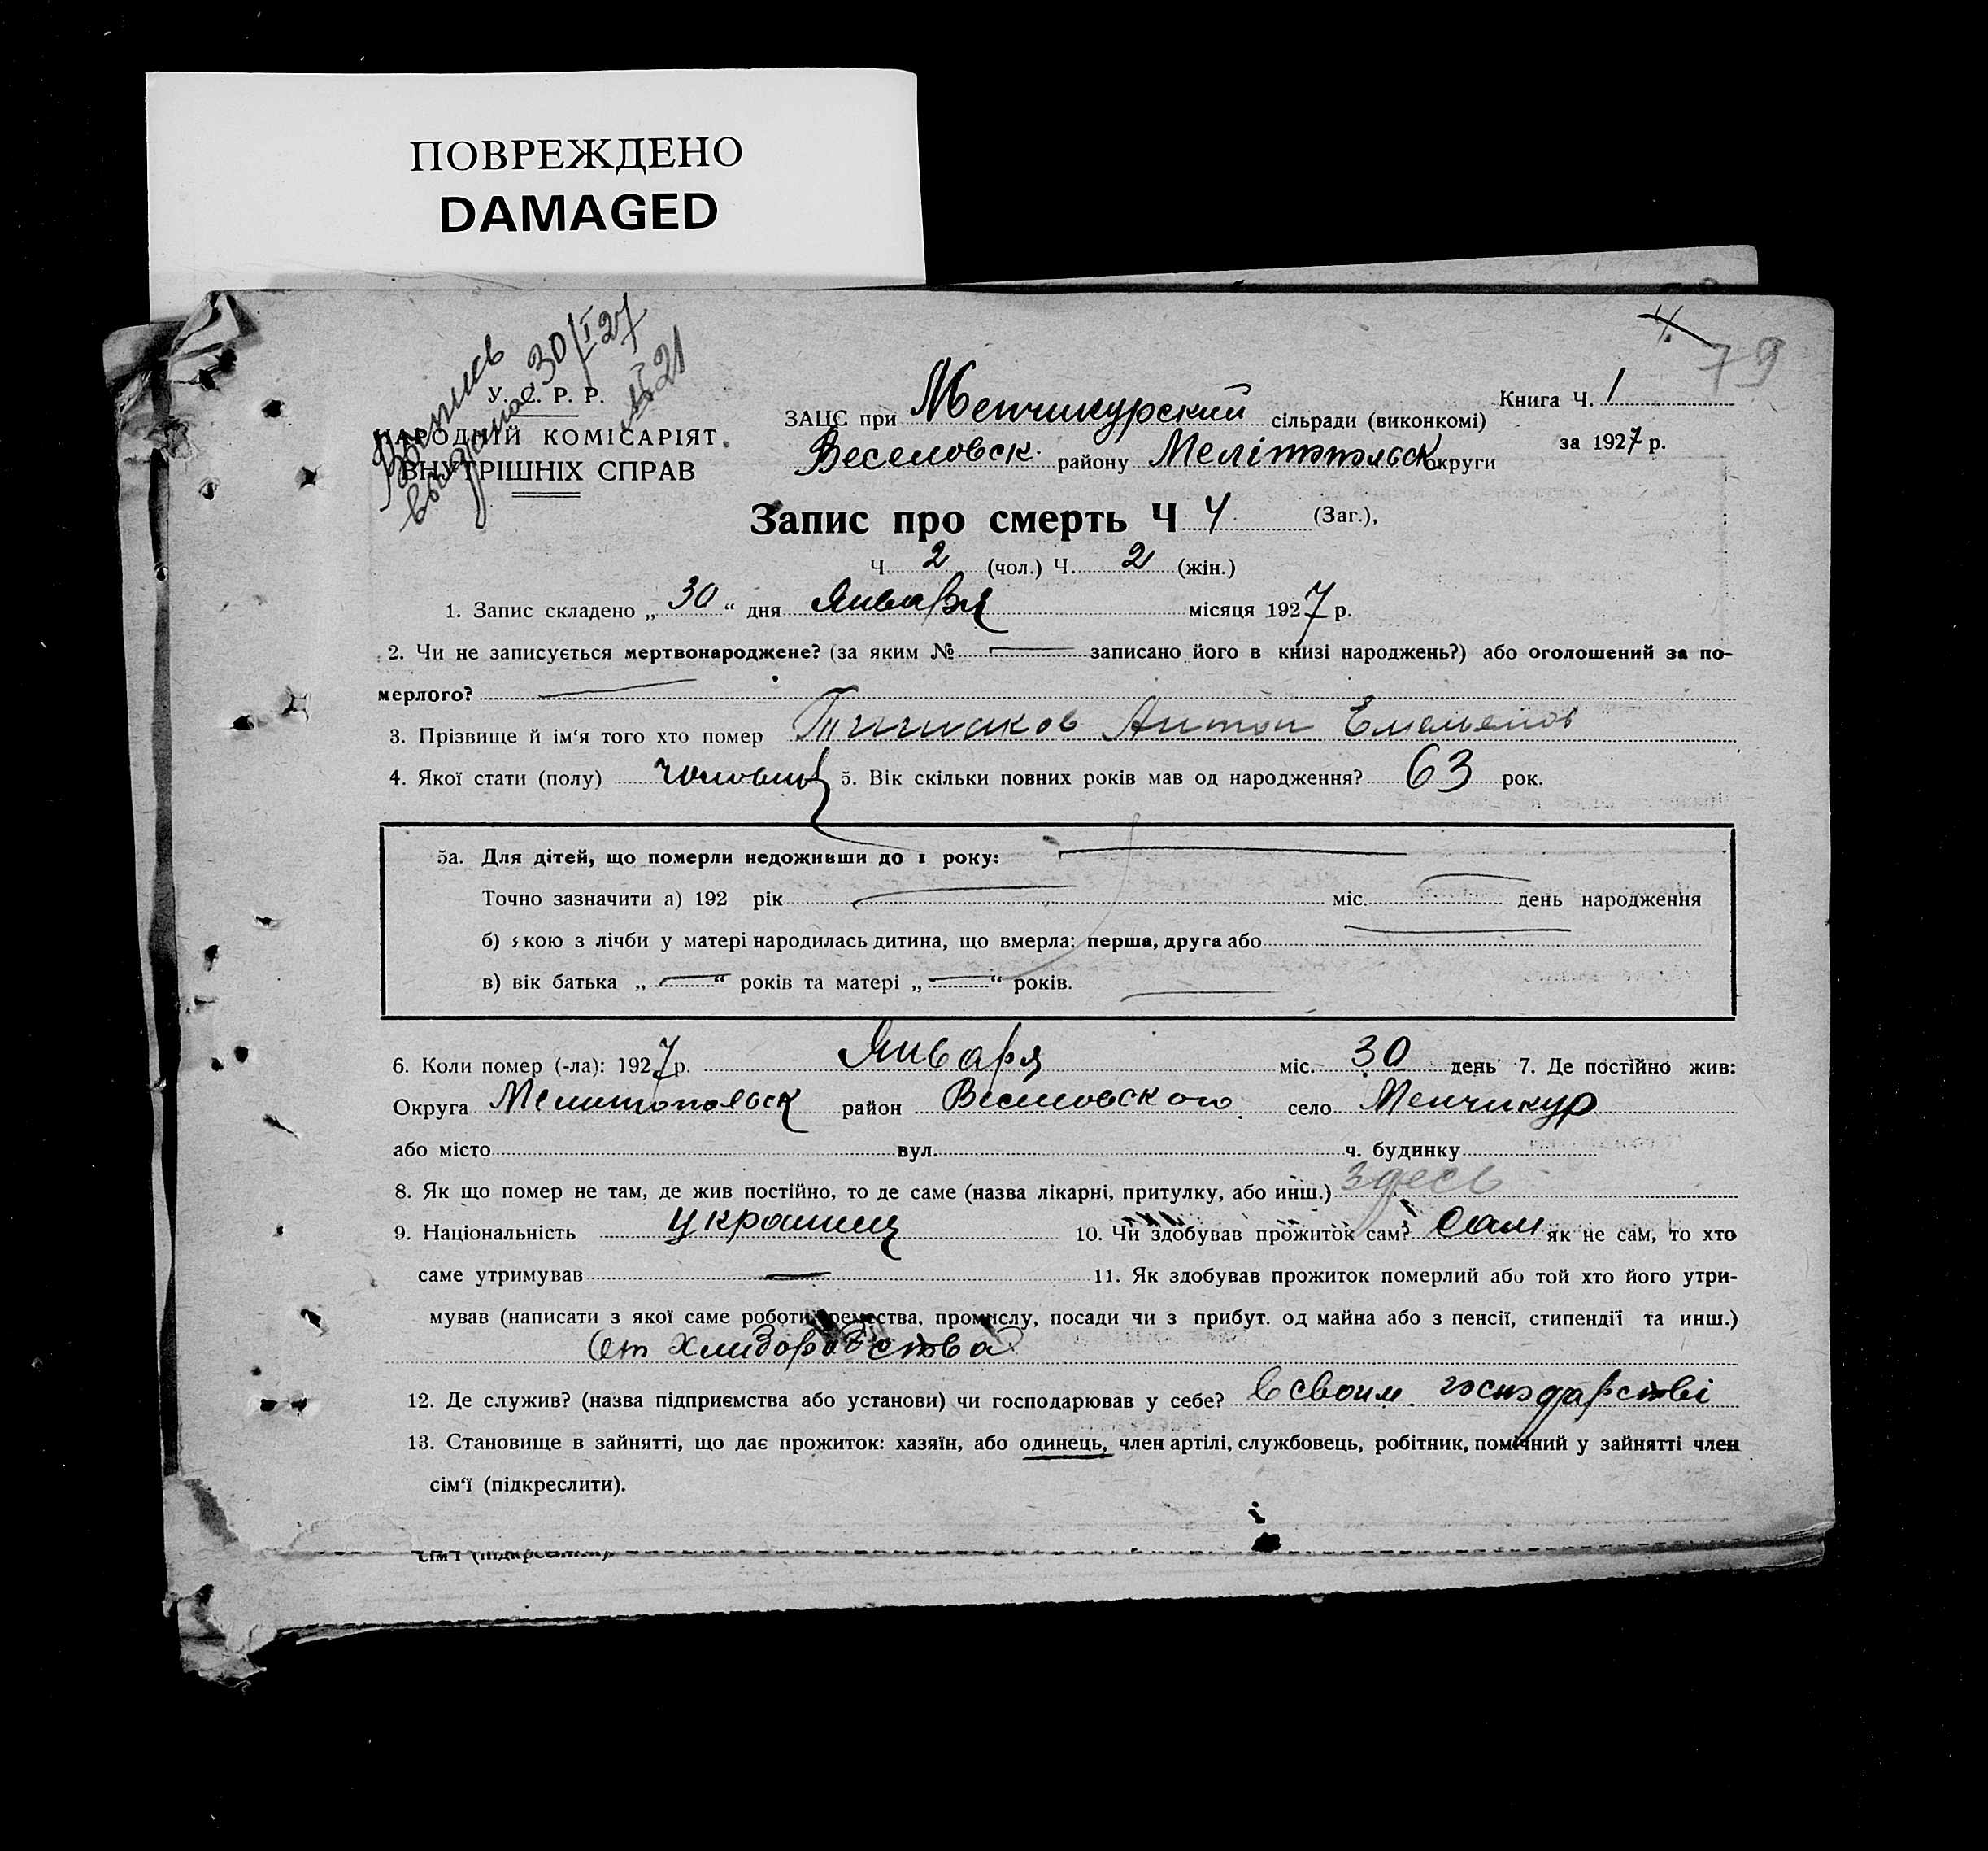 ПОВРЕЖДЕНО
DAMAGED
4.
79
Выпись
выдана 30/I 27
№ 21
У. С. Р. Р.
НАРОДНІЙ КОМІСАРІЯТ
ВНУТРІШНІХ СПРАВ
Книга Ч. 1
за 1927 р.
ЗАЦС при Менчикурский сільради (виконкомі)
Веселовск. району Мелітопольск округи
Запис про смерть Ч 4 (Заг.),
Ч 2 (чол.) Ч. 2 (жін.)
1. Запис складено „30“ дня Января місяця 1927 р.
2. Чи не записується мертвонароджене? (за яким № — записано його в книзі народжень?) або оголошений за по-
мерлого? —
3. Прізвище й ім‘я того хто помер Антон Емельянов
4. Якої стати (полу) 5. Вік скільки повних років мав од народження? 63 рок.
5а. Для дітей, що померли недоживши до 1 року: —
Точно зазначити а) 192 рік — міс. — день народження
б) якою з лічби у матері народилась дитина, що вмерла: перша, друга або —
в) вік батька „—“ років та матері „—“ років.
6. Коли помер (-ла): 1927 р. Января міс. 30 день 7. Де постійно жив:
Округа Мелитопольск район Веселовского село Менчикур
або місто вул. ч. будинку
8. Як що помер не там, де жив постійно, то де саме (назва лікарні, притулку, або инш.) здесь
9. Національність украинец 10. Чи здобував прожиток сам? Сам як не сам, то хто
саме утримував — 11. Як здобував прожиток померлий або той хто його утри-
мував (написати з якої саме роботи, ремества, промислу, посади чи з прибут. од майна або з пенсії, стипендії та инш.)
От хлиборобства
12. Де служив? (назва підприємства або установи) чи господарював у себе? В своим господарстві
13. Становище в зайнятті, що дає прожиток: хазяїн, або одинець, член артілі, службовець, робітник, помічний у зайнятті член
сім‘ї (підкреслити).
сім‘ї (підкреслити).